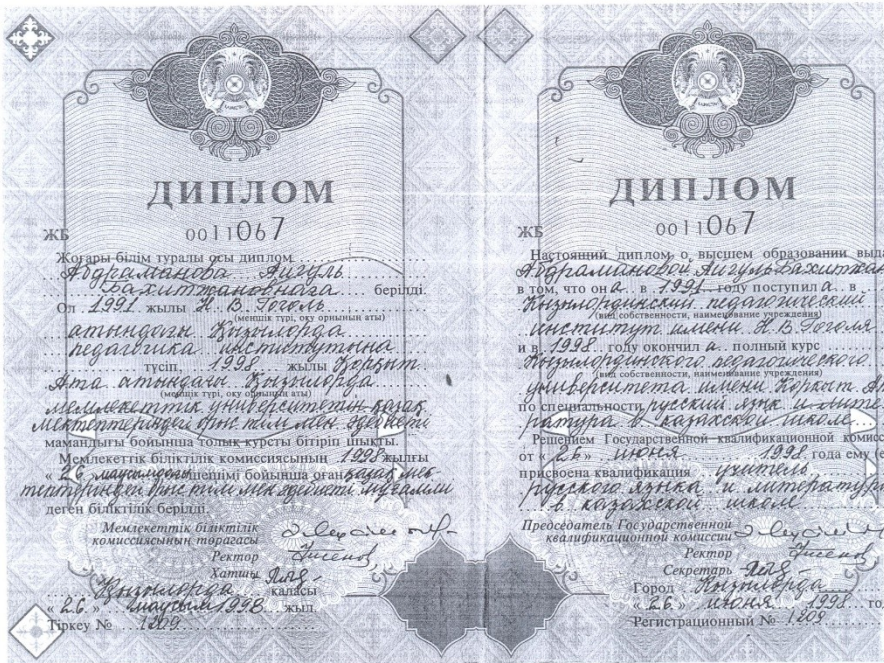 ДИПЛОМ
ЖБ 0011067
Жоғары білім туралы осы диплом
Абдраманова Айгуль
Бахитжановнаға берілді.
Ол 1991 жылы Н. В. Гоголь
(меншік түрі, оқу орнының аты)
атындағы Қызылорда
педагогика институтына
түсіп, 1998 жылы Қорқыт
Ата атындағы Қызылорда
(меншік түрі, оқу орнының аты)
мемлекеттік университетін қазақ
мектептеріндегі орыс тілі мен әдебиеті
мамандығы бойынша толық курсты бітіріп шықты.
Мемлекеттік біліктілік комиссиясының 1998 жылғы
« 26 маусымдағы шешімі бойынша оған қазақ мек-
тептеріндегі орыс тілі мен әдебиеті мұғалімі
деген біліктілік берілді.
Мемлекеттік біліктілік
комиссиясының төрағасы
Ректор
Хатшы
Қызылорда қаласы
« 26 » маусым 1998 жыл
Тіркеу № 1209
ДИПЛОМ
ЖБ 0011067
Настоящий диплом о высшем образовании выда
Абдрамановой Айгуль Бахитжан
в том, что она в 1991 году поступила в
Кызылординский педагогический
(вид собственности, наименование учреждения)
институт имени Н. В. Гоголя
и в 1998 году окончила полный курс
Кызылординского педагогического
(вид собственности, наименование учреждения)
университета имени Коркыт А
по специальности русский язык и лите-
ратура в казахской школе
Решением Государственной квалификационной комисс
от « 26 » июня 1998 года ему (е
присвоена квалификация учитель
русского языка и литературы
в казахской школе
Председатель Государственной
квалификационной комиссии
Ректор
Секретарь
Город Кызылорда
« 26 » июня 1998 го
Регистрационный № 1209